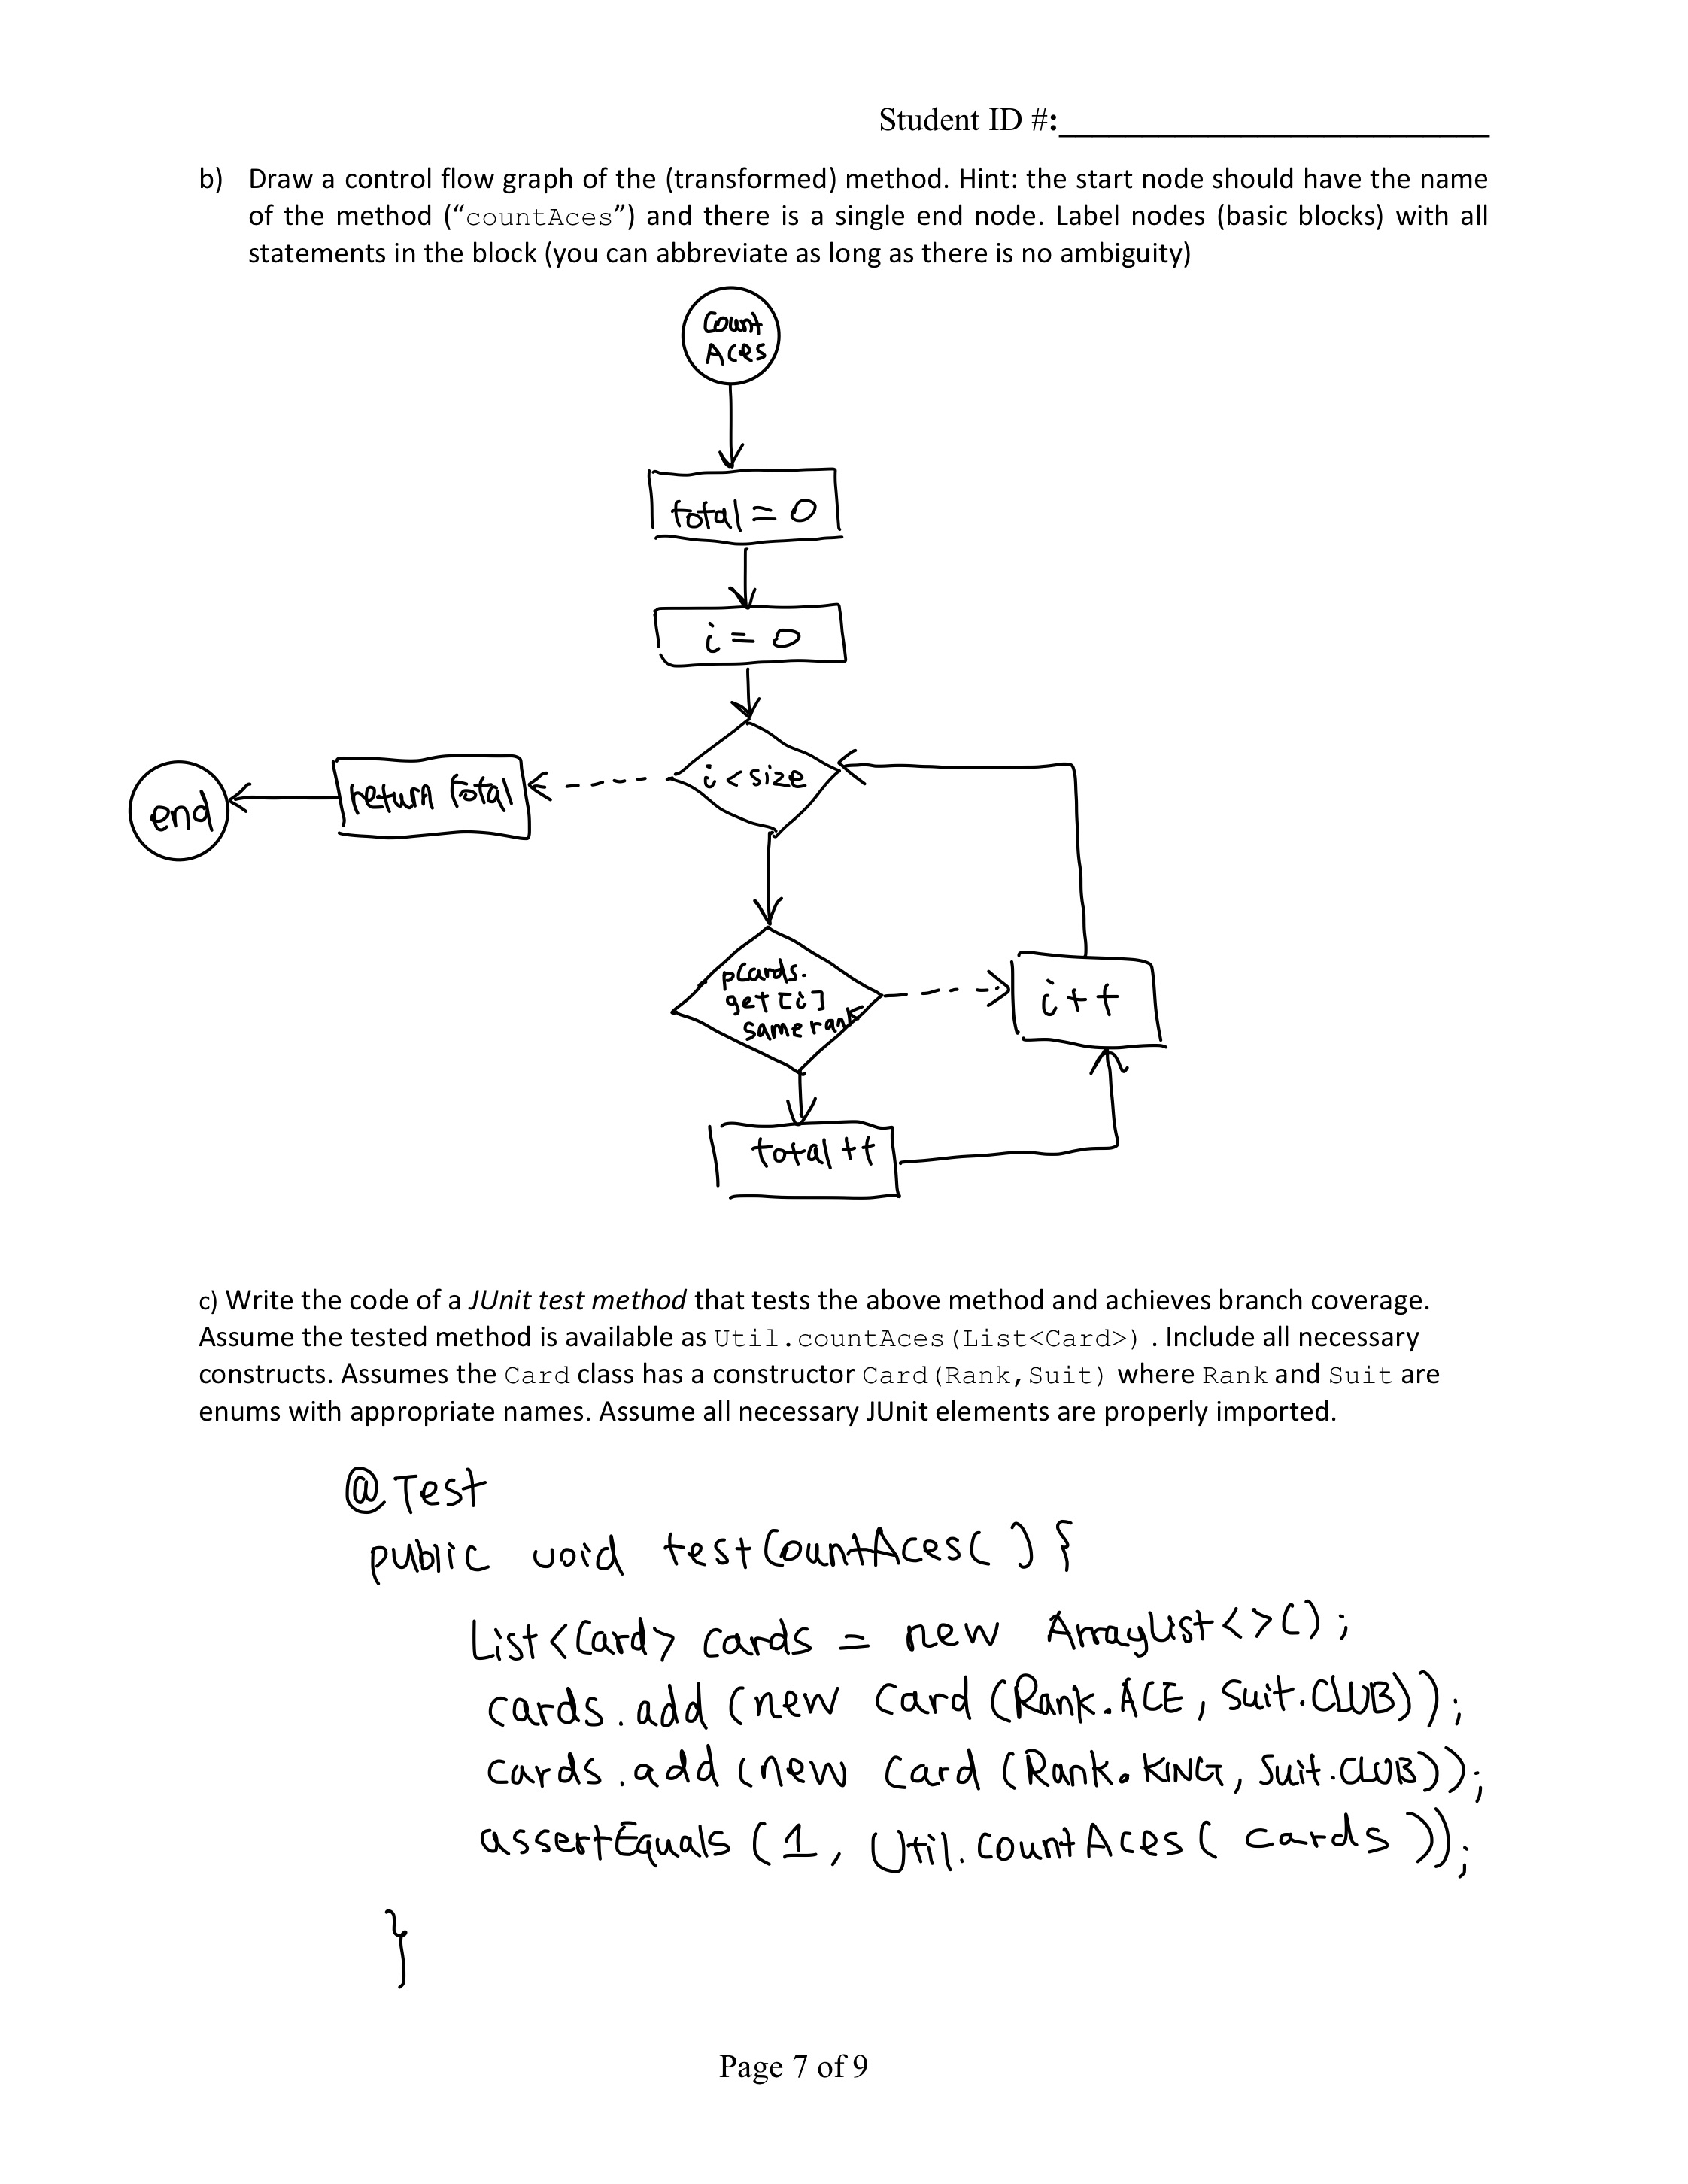 Student ID #:
b) Draw a control flow graph of the (transformed) method. Hint: the start node should have the name
of the method (“countAces”) and there is a single end node. Label nodes (basic blocks) with all
statements in the block (you can abbreviate as long as there is no ambiguity)
Count
Aces
total = 0
i = 0
i < size
return total
end
pCards.
get [i]
same rank
i++
total ++
c) Write the code of a JUnit test method that tests the above method and achieves branch coverage.
Assume the tested method is available as Util.countAces(List<Card>) . Include all necessary
constructs. Assumes the Card class has a constructor Card(Rank,Suit) where Rank and Suit are
enums with appropriate names. Assume all necessary JUnit elements are properly imported.
@Test
public void testCountAces() {
List<Card> cards = new ArrayList<>();
cards.add (new Card (Rank.ACE, Suit.CLUB));
cards.add (new Card (Rank.KING, Suit.CLUB));
assertEquals (1, Util.countAces( cards ));
}
Page 7 of 9